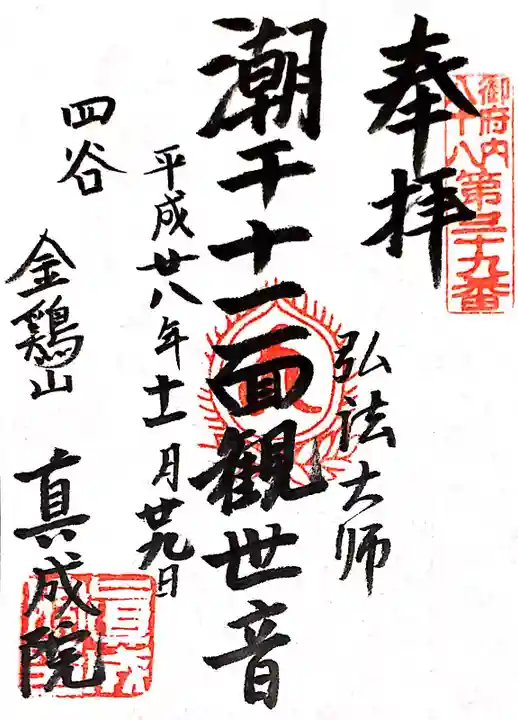 御府内
八十八
第三十九番
奉拝
弘法大師
潮干十一面観世音
平成廿八年十一月廿九日
四谷
金鶏山
真成院